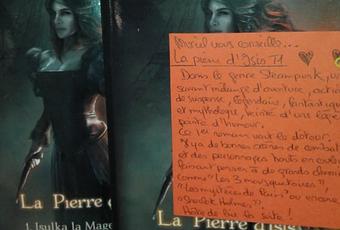 vous conseille...
La pierre d'Isis T1
Dans le genre Steampunk, un
savant mélange d'aventure, action
de suspense, légendaire, fantastique
et mythologie, teinté d'une légère
pointe d'humour.
Ce 1er roman vaut le détour.
Il y a de bonnes scènes de combat
et des personnages hauts en couleur
faisant penser à de grands classiques
comme "Les 3 mousquetaires",
"Les mystères de Paris" ou encore
"Sherlock Holmes".
Hâte de lire la suite !
La Pierre d'Isis
La Pierre
1. Isulka la Mage